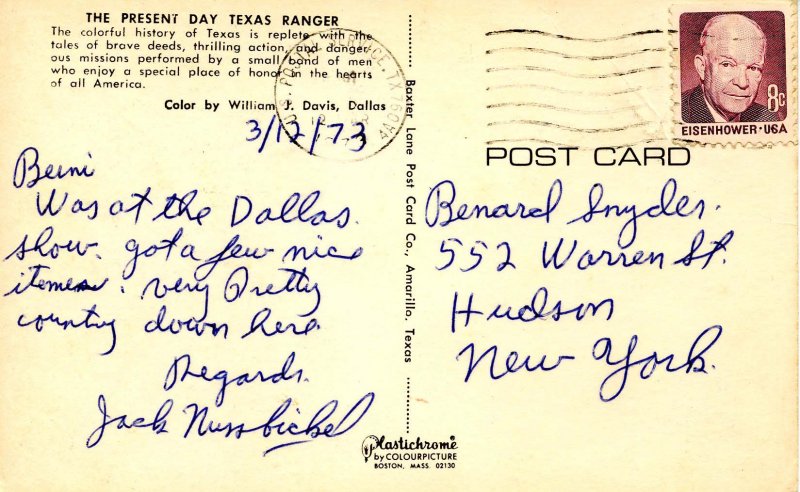 THE PRESENT DAY TEXAS RANGER
The colorful history of Texas is replete with the
tales of brave deeds, thrilling action, and danger-
ous missions performed by a small band of men
who enjoy a special place of honor in the hearts
of all America.
Color by William J. Davis, Dallas
3/12/73
Berni
Was at the Dallas
show. got a few nice
items. very Pretty
country down here
Regards.
Jack Nussbickel
Baxter Lane Post Card Co., Amarillo, Texas
Plastichrome
by COLOURPICTURE
BOSTON, MASS. 02130
U.S. POSTAL SERVICE, TX
8c
EISENHOWER·USA
POST CARD
Benard Snyder.
552 Warren St.
Hudson
New York.